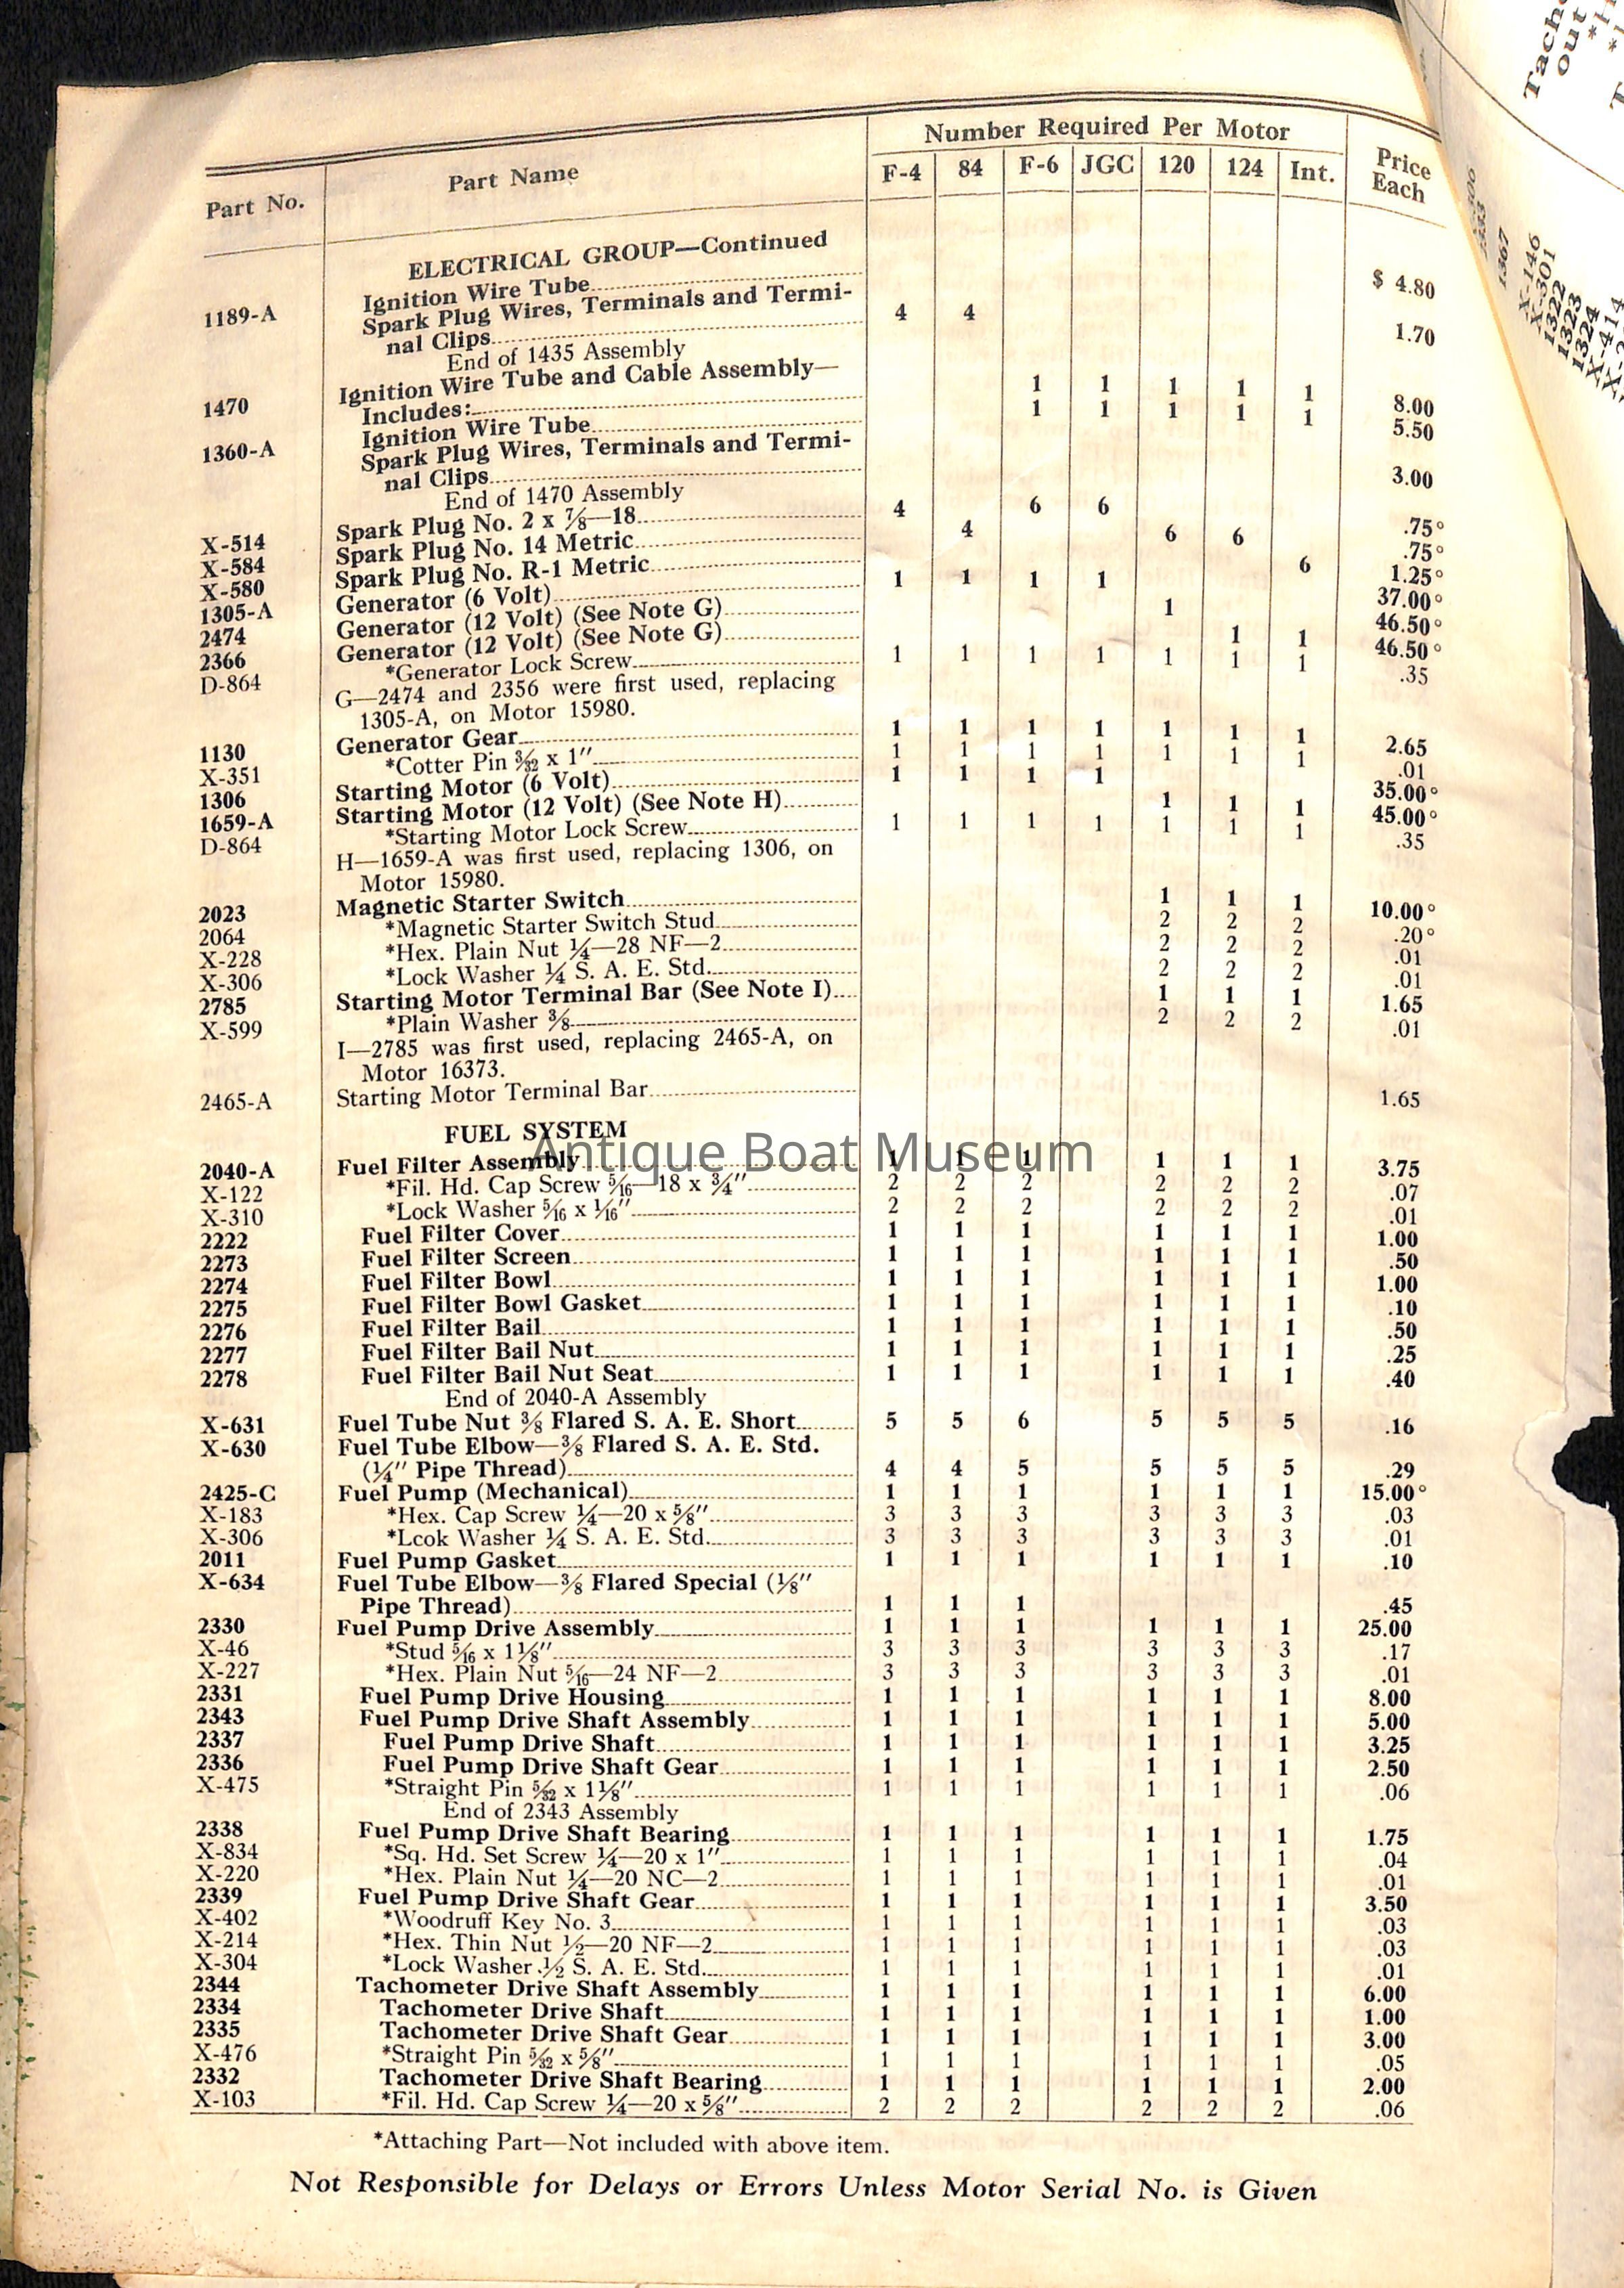 Number Required Per Motor
Part No. Part Name F-4 84 F-6 JGC 120 124 Int. Price Each
ELECTRICAL GROUP—Continued
1189-A Ignition Wire Tube $ 4.80
Spark Plug Wires, Terminals and Termi-
nal Clips 4 4 1.70
End of 1435 Assembly
1470 Ignition Wire Tube and Cable Assembly—
Includes: 1 1 1 1 1 8.00
1360-A Ignition Wire Tube 1 1 1 1 1 5.50
Spark Plug Wires, Terminals and Termi-
nal Clips 3.00
End of 1470 Assembly
X-514 Spark Plug No. 2 x 7/8—18 4 6 6 .75°
X-584 Spark Plug No. 14 Metric 4 6 6 .75°
X-580 Spark Plug No. R-1 Metric 6 1.25°
1305-A Generator (6 Volt) 1 1 1 1 37.00°
2474 Generator (12 Volt) (See Note G) 1 46.50°
2366 Generator (12 Volt) (See Note G) 1 1 46.50°
D-864 *Generator Lock Screw 1 1 1 1 1 1 1 .35
G—2474 and 2356 were first used, replacing
1305-A, on Motor 15980.
1130 Generator Gear 1 1 1 1 1 1 1 2.65
X-351 *Cotter Pin 3/32 x 1″ 1 1 1 1 1 1 1 .01
1306 Starting Motor (6 Volt) 1 1 1 1 35.00°
1659-A Starting Motor (12 Volt) (See Note H) 1 1 1 45.00°
D-864 *Starting Motor Lock Screw 1 1 1 1 1 1 1 .35
H—1659-A was first used, replacing 1306, on
Motor 15980.
2023 Magnetic Starter Switch 1 1 1 10.00°
2064 *Magnetic Starter Switch Stud 2 2 2 .20°
X-228 *Hex. Plain Nut 1/4—28 NF—2 2 2 2 .01
X-306 *Lock Washer 1/4 S. A. E. Std. 2 2 2 .01
2785 Starting Motor Terminal Bar (See Note I) 1 1 1 1.65
X-599 *Plain Washer 3/8 2 2 2 .01
I—2785 was first used, replacing 2465-A, on
Motor 16373.
2465-A Starting Motor Terminal Bar 1.65
FUEL SYSTEM
Antique Boat Museum
2040-A Fuel Filter Assembly 1 1 1 1 1 1 3.75
X-122 *Fil. Hd. Cap Screw 5/16—18 x 3/4″ 2 2 2 2 2 2 .07
X-310 *Lock Washer 5/16 x 1/16″ 2 2 2 2 2 2 .01
2222 Fuel Filter Cover 1 1 1 1 1 1 1.00
2273 Fuel Filter Screen 1 1 1 1 1 1 .50
2274 Fuel Filter Bowl 1 1 1 1 1 1 1.00
2275 Fuel Filter Bowl Gasket 1 1 1 1 1 1 .10
2276 Fuel Filter Bail 1 1 1 1 1 1 .50
2277 Fuel Filter Bail Nut 1 1 1 1 1 1 .25
2278 Fuel Filter Bail Nut Seat 1 1 1 1 1 1 .40
End of 2040-A Assembly
X-631 Fuel Tube Nut 3/8 Flared S. A. E. Short 5 5 6 5 5 5 .16
X-630 Fuel Tube Elbow—3/8 Flared S. A. E. Std.
(1/4″ Pipe Thread) 4 4 5 5 5 5 .29
2425-C Fuel Pump (Mechanical) 1 1 1 1 1 1 15.00°
X-183 *Hex. Cap Screw 1/4—20 x 5/8″ 3 3 3 3 3 3 .03
X-306 *Lcok Washer 1/4 S. A. E. Std. 3 3 3 3 3 3 .01
2011 Fuel Pump Gasket 1 1 1 1 1 1 .10
X-634 Fuel Tube Elbow—3/8 Flared Special (1/8″
Pipe Thread) 1 1 1 .45
2330 Fuel Pump Drive Assembly 1 1 1 1 1 1 25.00
X-46 *Stud 5/16 x 1 1/8″ 3 3 3 3 3 3 .17
X-227 *Hex. Plain Nut 5/16—24 NF—2 3 3 3 3 3 3 .01
2331 Fuel Pump Drive Housing 1 1 1 1 1 1 8.00
2343 Fuel Pump Drive Shaft Assembly 1 1 1 1 1 1 5.00
2337 Fuel Pump Drive Shaft 1 1 1 1 1 1 3.25
2336 Fuel Pump Drive Shaft Gear 1 1 1 1 1 1 2.50
X-475 *Straight Pin 5/32 x 1 1/8″ 1 1 1 1 1 1 .06
End of 2343 Assembly
2338 Fuel Pump Drive Shaft Bearing 1 1 1 1 1 1 1.75
X-834 *Sq. Hd. Set Screw 1/4—20 x 1″ 1 1 1 1 1 1 .04
X-220 *Hex. Plain Nut 1/4—20 NC—2 1 1 1 1 1 1 .01
2339 Fuel Pump Drive Shaft Gear 1 1 1 1 1 1 3.50
X-402 *Woodruff Key No. 3 1 1 1 1 1 1 .03
X-214 *Hex. Thin Nut 1/2—20 NF—2 1 1 1 1 1 1 .03
X-304 *Lock Washer 1/2 S. A. E. Std. 1 1 1 1 1 1 .01
2344 Tachometer Drive Shaft Assembly 1 1 1 1 1 1 6.00
2334 Tachometer Drive Shaft 1 1 1 1 1 1 1.00
2335 Tachometer Drive Shaft Gear 1 1 1 1 1 1 3.00
X-476 *Straight Pin 5/32 x 5/8″ 1 1 1 1 1 1 .05
2332 Tachometer Drive Shaft Bearing 1 1 1 1 1 1 2.00
X-103 *Fil. Hd. Cap Screw 1/4—20 x 5/8″ 2 2 2 2 2 2 .06
*Attaching Part—Not included with above item.
Not Responsible for Delays or Errors Unless Motor Serial No. is Given
Tach
out
1367
X-146
X-301
1322
1323
1324
X-414